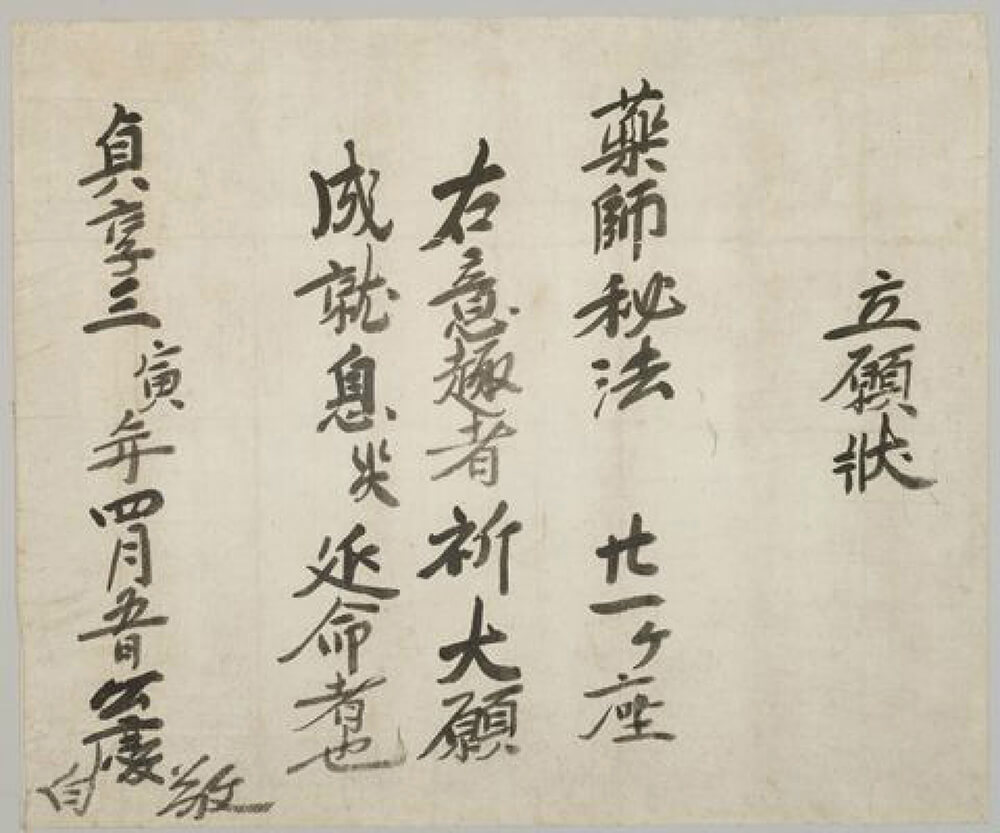 立願状
薬師秘法 廿一ヶ座
右意趣者祈大願
成就息災延命者也
貞享三寅年四月五日公慶
敬白